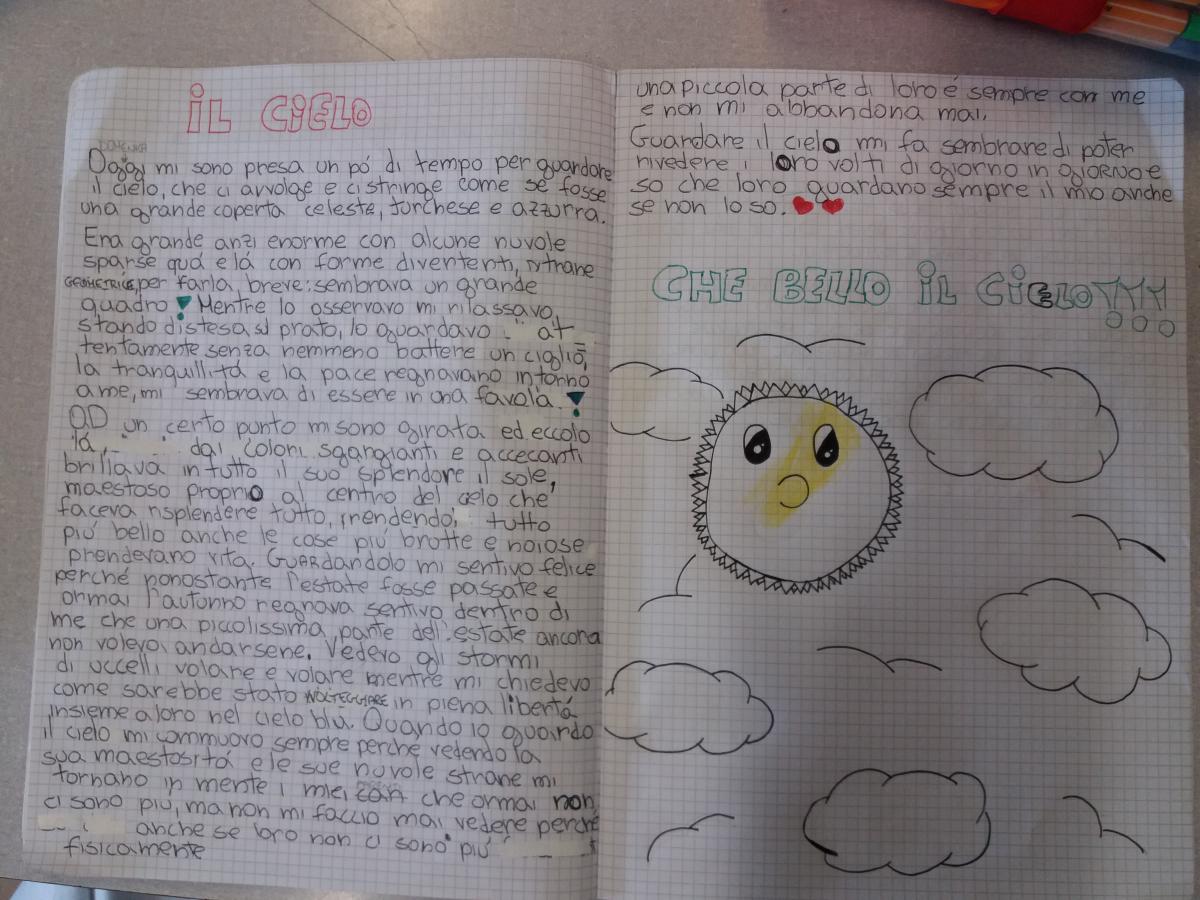 IL CIELO
DOMENICA
Oggi mi sono presa un pó di tempo per guardare
il cielo, che ci avvolge e ci stringe come se fosse
una grande coperta celeste, turchese e azzurra.
Era grande anzi enorme con alcune nuvole
sparse quá e lá con forme divertenti, strane
GEOMETRICHE, per farla breve: sembrava un grande
quadro! Mentre lo osservavo mi rilassavo,
stando distesa sul prato, lo guardavo at=
tentamente senza nemmeno battere un ciglio,
la tranquillitá e la pace regnavano intorno
a me, mi sembrava di essere in una favola!
AD un certo punto mi sono girata ed eccolo
lá, dai colori sgargianti e accecanti
brillava in tutto il suo splendore il sole,
maestoso proprio al centro del cielo che
faceva risplendere tutto, rendendo tutto
piú bello anche le cose piú brutte e noiose
prendevano vita. GUARDandolo mi sentivo felice
perché nonostante l'estate fosse passate e
ormai l'autunno regnava sentivo dentro di
me che una piccolissima parte dell'estate ancora
non voleva andarsene. Vedevo gli stormi
di uccelli volare e volare mentre mi chiedevo
come sarebbe stato VOLTEGGIARE in piena libertá
insieme a loro nel cielo blu. Quando io guardo
il cielo mi commuovo sempre perche vedendo la
sua maestositá e le sue nuvole strane mi
tornano in mente i miei cari che ormai non
ci sono piu, ma non mi faccio mai vedere perché
anche se loro non ci sono piú
fisicamente
una piccola parte di loro é sempre con me
e non mi abbandona mai.
Guardare il cielo mi fa sembrare di poter
rivedere i loro volti di giorno in giorno e
so che loro guardano sempre il mio anche
se non lo so.
CHE BELLO IL CIELO!!!